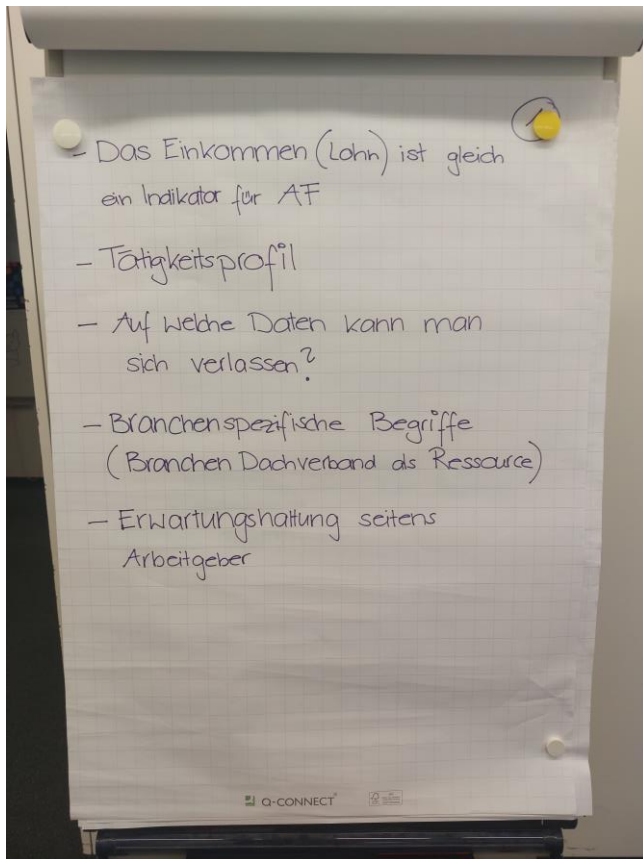 1
- Das Einkommen (Lohn) ist gleich
ein Indikator für AF
- Tätigkeitsprofil
- Auf welche Daten kann man
sich verlassen?
- Branchenspezifische Begriffe
(Branchen Dachverband als Ressource)
- Erwartungshaltung seitens
Arbeitgeber
Q-CONNECT